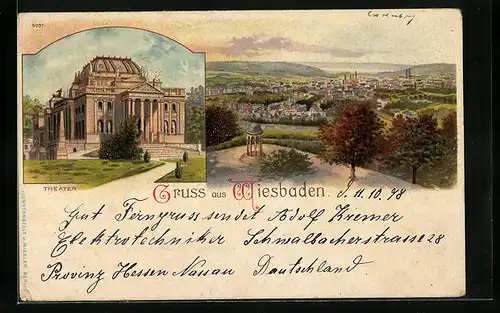 5037.
THEATER
Gruss aus Wiesbaden. d. 11. 10. 98
Gut Ferngruss sendet Adolf Kremer
Elektrotechniker Schwalbacherstrasse 28
Provinz Hessen Nassau Deutschland